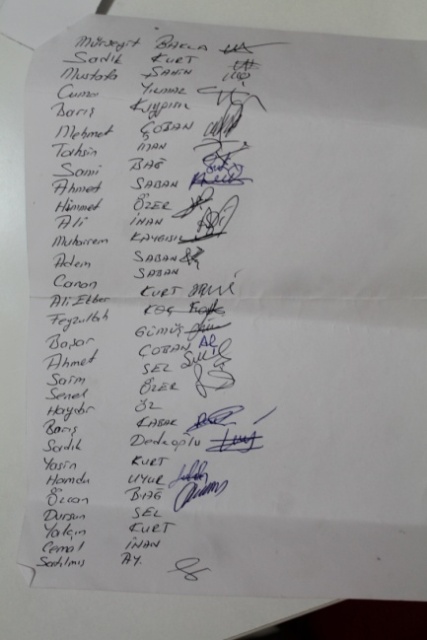 Mürseyit BAKLA
Sadık KURT
Mustafa ŞAHİN
Cuma YILMAZ
Barış Kaygısız
Mehmet ÇOBAN
Tahsin İNAN
Sami BAĞ
Ahmet ŞABAN
Himmet ÖZER
Ali İNAN
Muharrem KAYGISIZ
Adem ŞABAN
Canan ŞABAN
Ali Ekber KURT
Feyzullah KOÇ
Başar GÜMÜŞ
Ahmet ÇOBAN
Saim SEL
Senel ÖZER
Haydır ÖZ
Barış KABAK
Sadık Dedeoğlu
Yasin KURT
Hamdu UYUR
Özcan BAĞ
Dursun SEL
Yalçın KURT
Cemal İNAN
Satılmış AY.